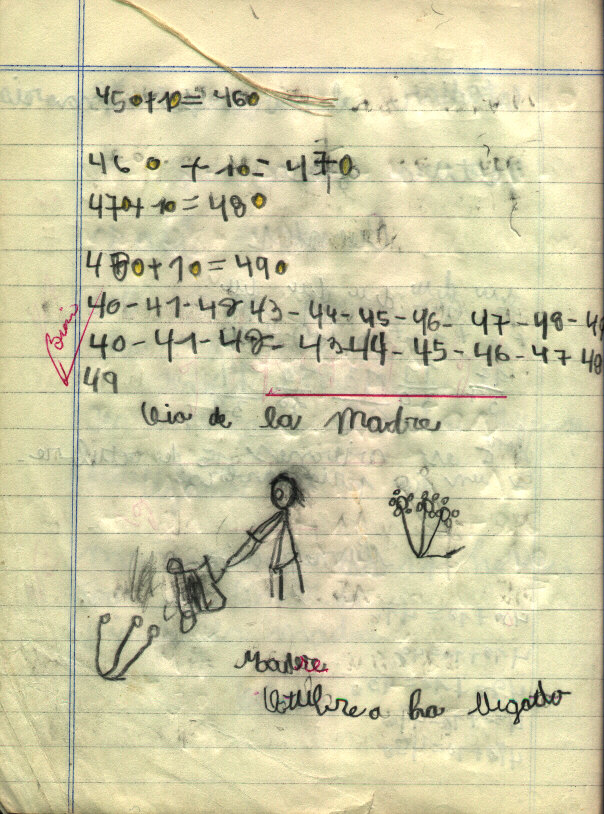 450+10=460
460 + 10= 470
470+10=480
480+10=490
40-41-42 43-44-45-46-47-48-49
40-41-42-43-44-45-46-47 48
49
Dia de la Madre
Madre
ha llegado